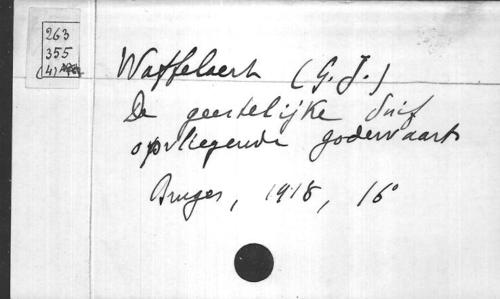 263
355
(4)
Waffelaert (G. J.)
De geestelijke duif
opvliegende godewaarts
Bruges, 1918, 16°